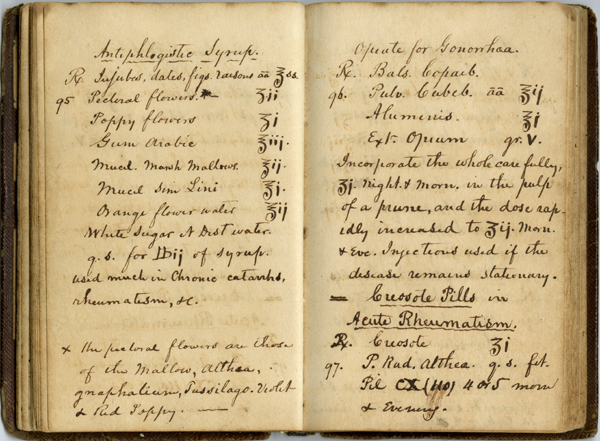 Antiphlogistic Syrup.
℞ Jujubes, dates, figs, raisons āā ℥ss.
95 Pectoral flowers. × ℥ii
Poppy flowers ℥i
Gum Arabic ℥iij.
Mucil. Marsh Mallows. ℥ij.
Mucil Sem Lini ℥i.
Orange flower water ℥ij
White Sugar & Dist water.
q.s. for lbij of syrup.
used much in Chronic catarrhs,
rheumatism, &c.
× the pectoral flowers are those
of the Mallow, Althea,
gnaphalium, Tussilago. Violet
& Red Poppy. —
Opiate for Gonorrhœa.
℞. Bals. Copaib.
96. Pulv. Cubeb. āā ℥ij
Aluminis. ℥i
Ext. Opium gr. V.
Incorporate the whole carefully,
ʒi. night. & morn. in the pulp
of a prune, and the dose rap-
idly increased to ʒij. Morn.
& Eve. Injections used if the
disease remains stationary.
— Creosote Pills in
Acute Rheumatism.
℞. Creosote ʒi
97. P. Rad. Althea. q.s. ft.
Pil CX (110) 4 or 5 morn
& Evening.